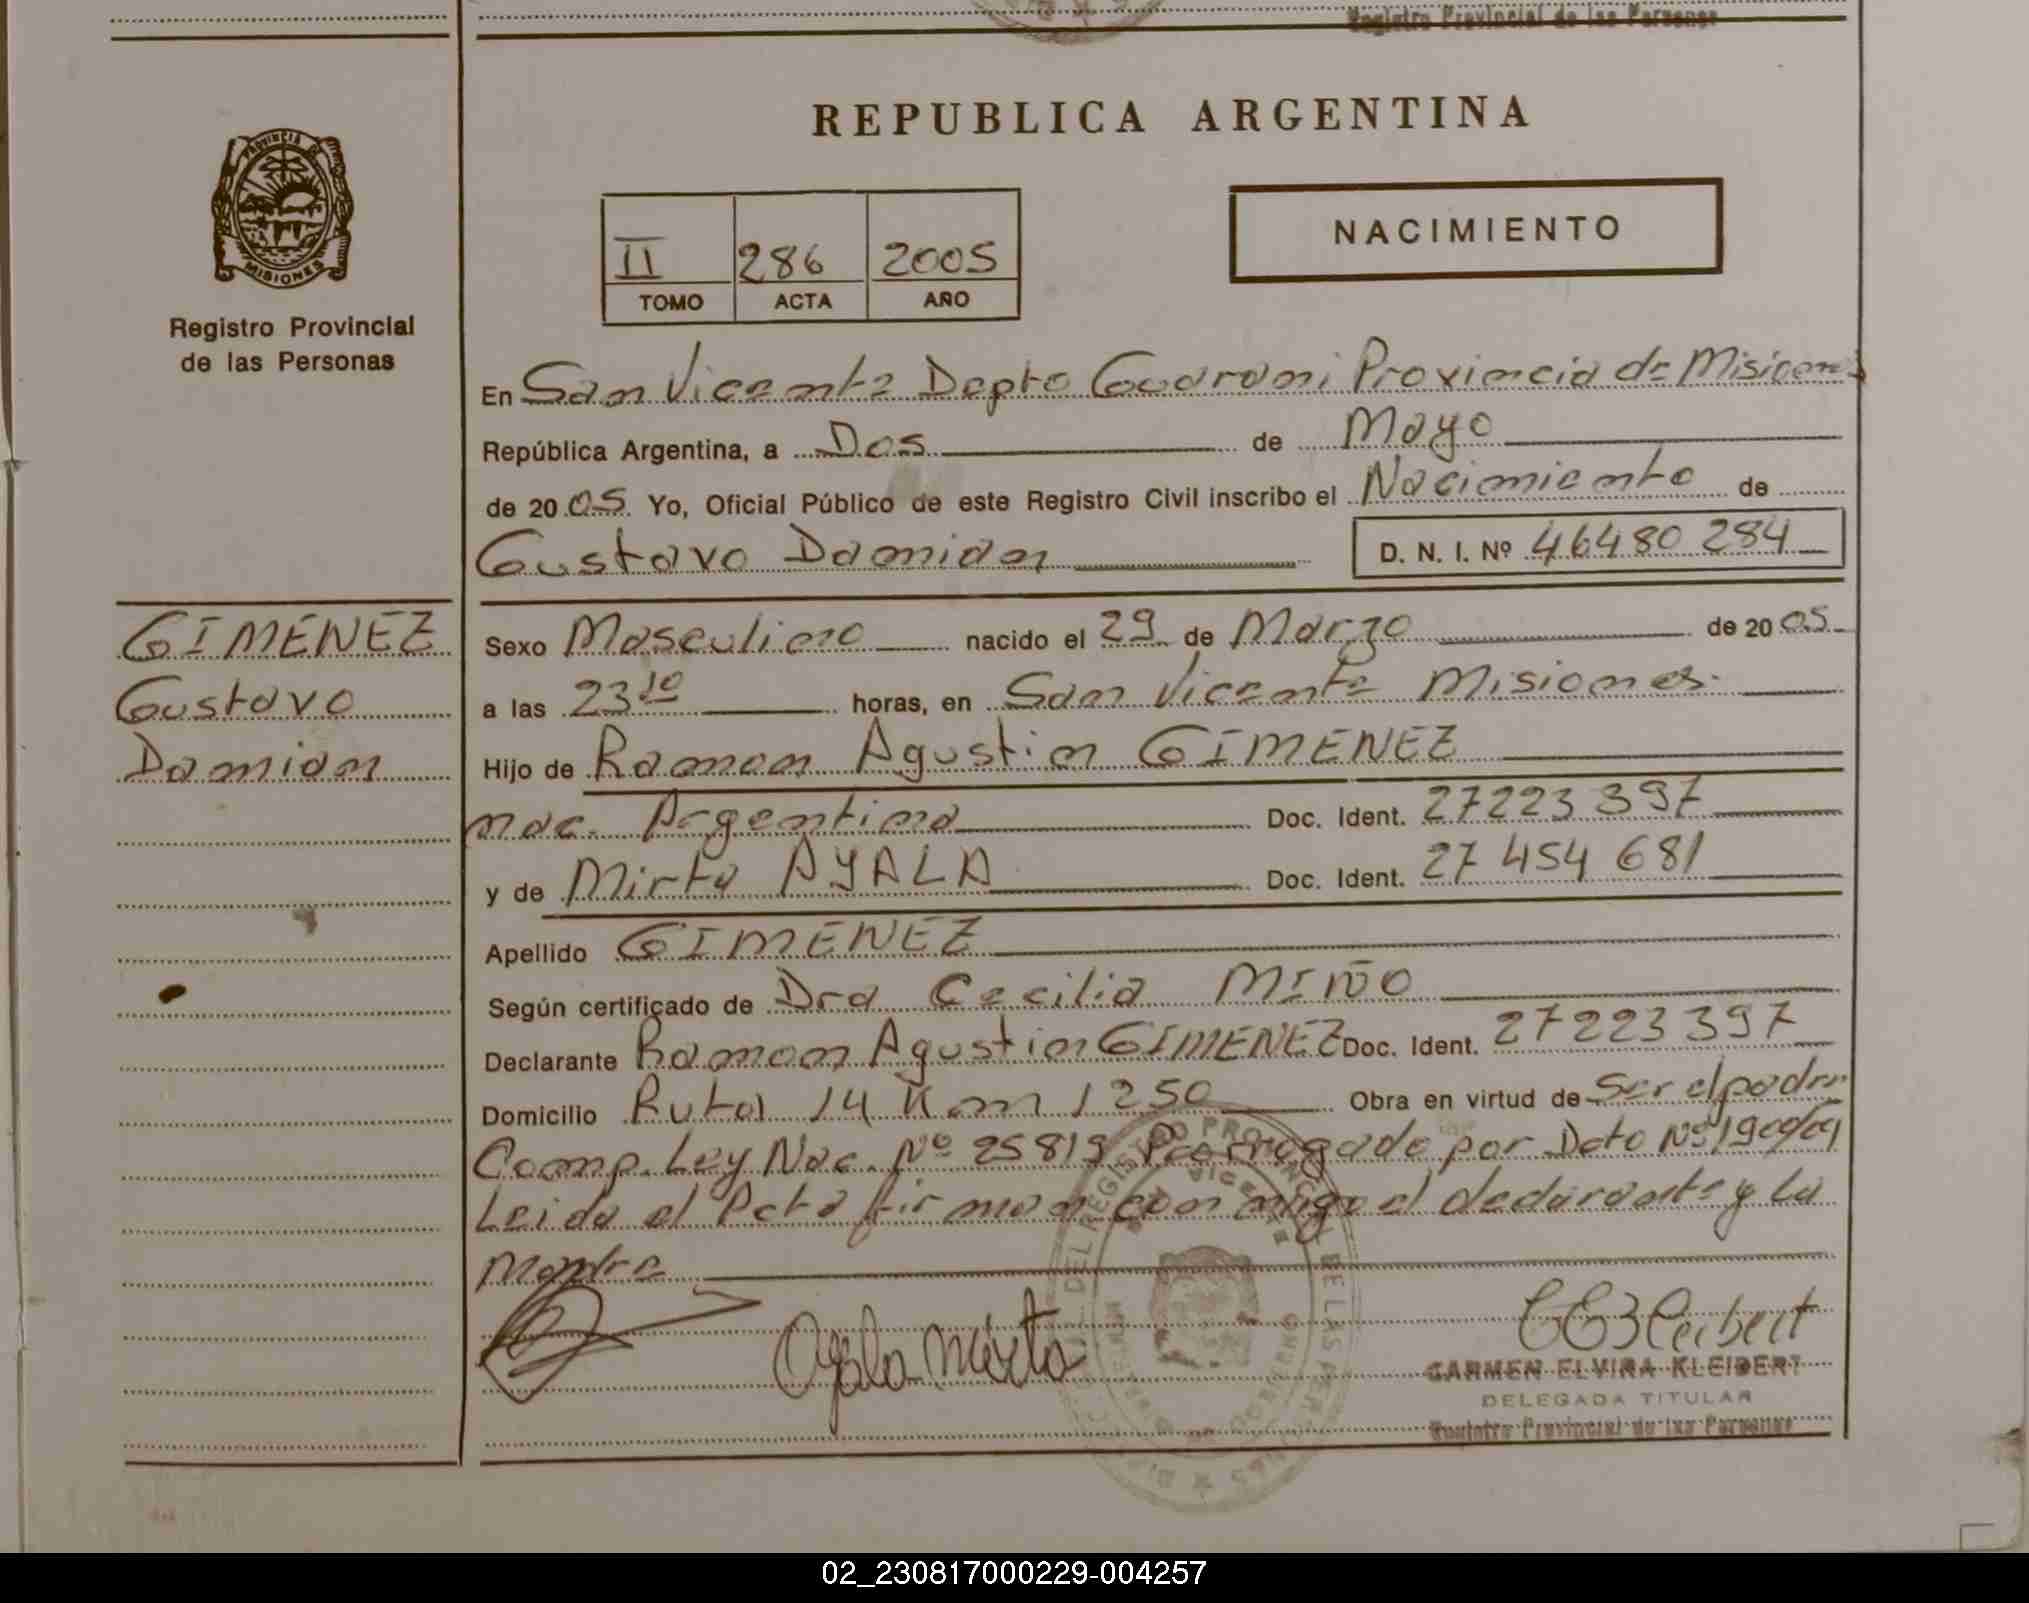 Registro Provincial de las Personas
REPUBLICA ARGENTINA
PROVINCIA DE
MISIONES
Registro Provincial
de las Personas
II 286 2005
TOMO ACTA AÑO
NACIMIENTO
En San Vicente Depto Guarani Provincia de Misiones
República Argentina, a Dos de Mayo
de 2005 Yo, Oficial Público de este Registro Civil inscribo el Nacimiento de
Gustavo Damian D. N. I. Nº 46480 284
GIMENEZ
Gustavo
Damian
Sexo Masculino nacido el 29 de Marzo de 2005
a las 23 10 horas, en San Vicente Misiones.
Hijo de Ramon Agustin GIMENEZ
nac. Argentina Doc. Ident. 27223 397
y de Mirta AYALA Doc. Ident. 27 454 681
Apellido GIMENEZ
Según certificado de Dra Cecilia MIÑO
Declarante Ramon Agustin GIMENEZ Doc. Ident. 27223 397
Domicilio Ruta 14 Km 1250 Obra en virtud de Ser el padre
Comp. Ley Nac. Nº 25819 Prorrogado por Dcto Nº
Leida el Acta firman conmigo el declarante y la
Madre
Ayala Mirta
CARMEN ELVIRA KLEIBERT
DELEGADA TITULAR
Registro Provincial de las Personas
02_230817000229-004257